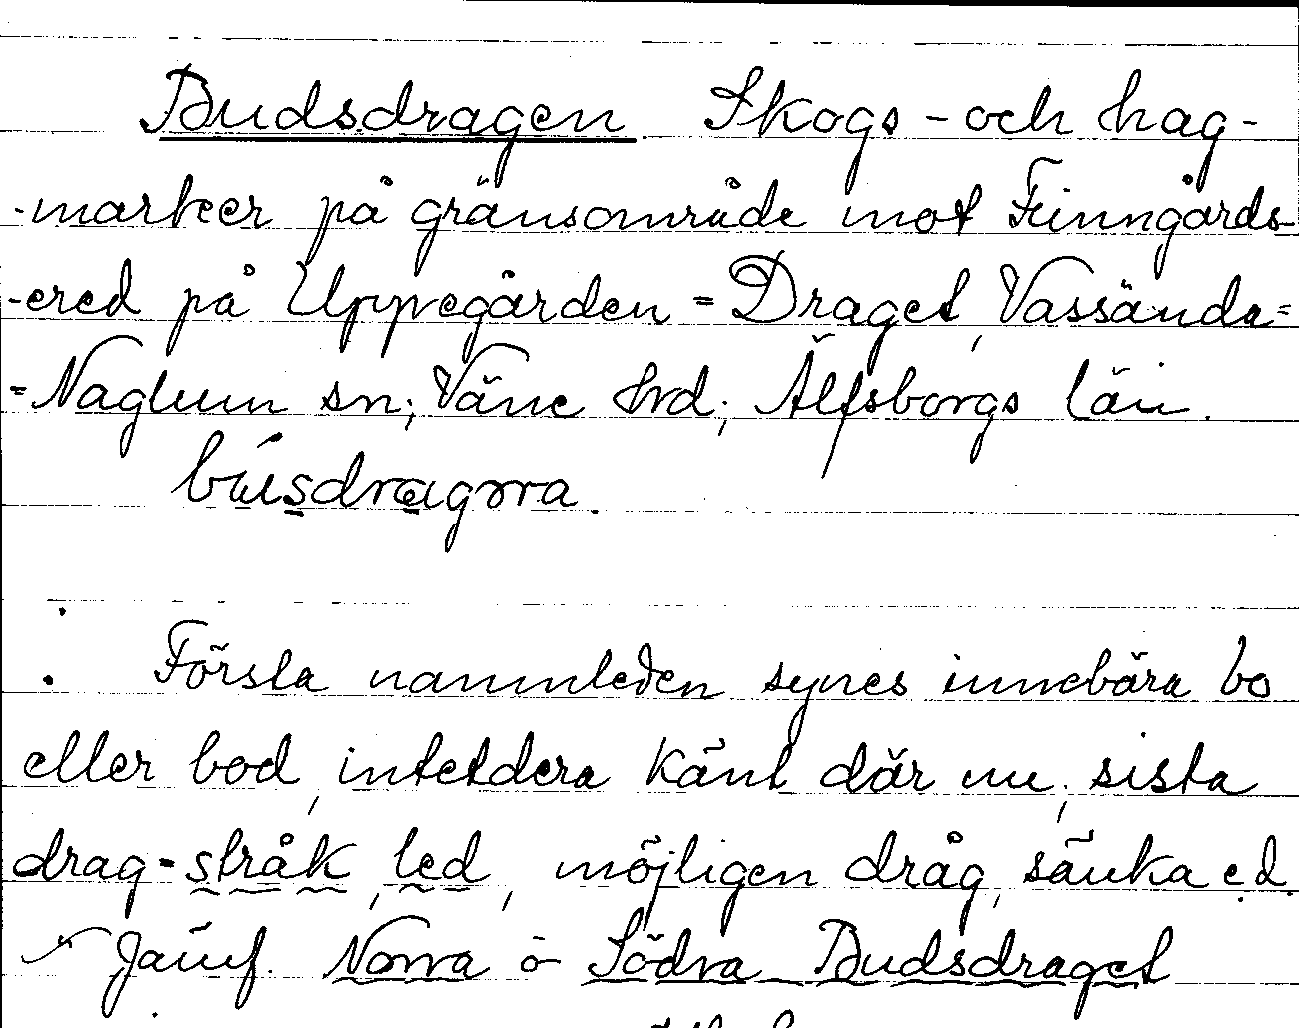 Budsdragen Skogs- och hag-
-marker på gränsområde mot Finngårds-
-ered på Uppegården = Draget, Vassända-
=Naglum sn; Väne hrd; Älfsborgs län.
busdragɷra.
: Första namnleden synes innebära bo
eller bod, intetdera känt där nu; sista
drag = stråk, led, möjligen dråg, sänka e.d.
Jämf. Norra o Södra Budsdraget